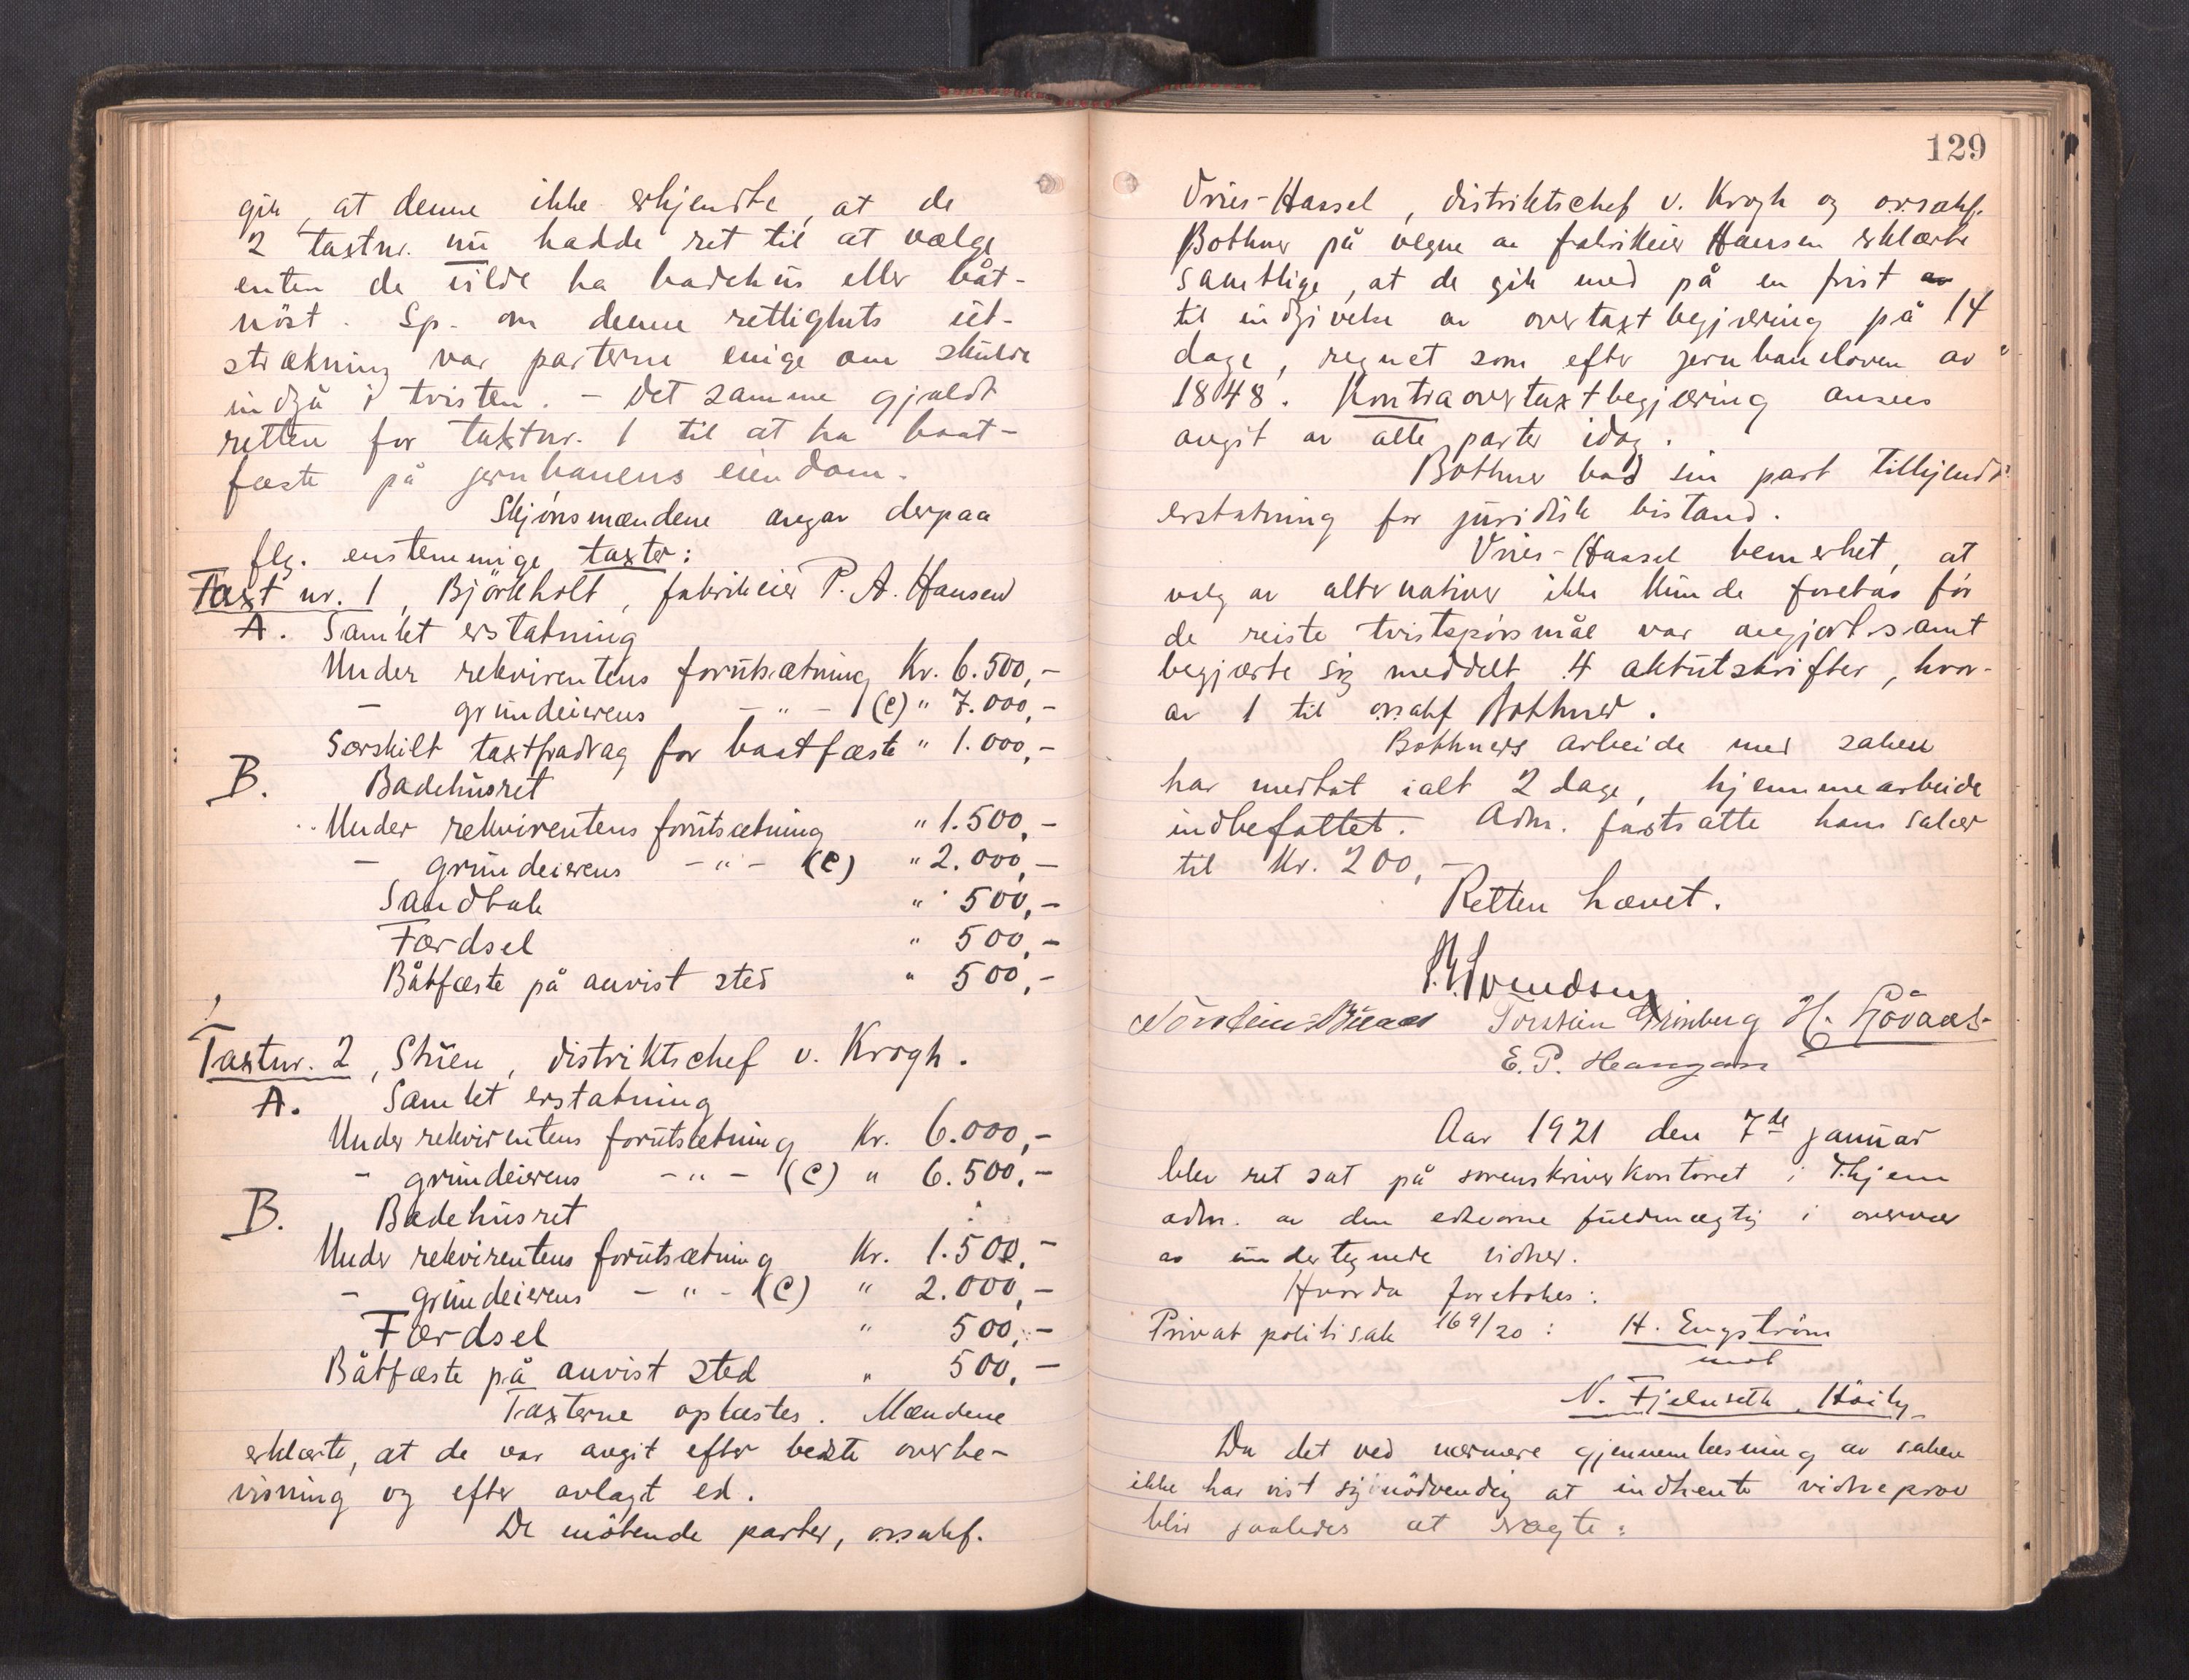 gik, at denne ikke erkjendte, at de
2 taxtnr. nu hadde ret til at vælge
enten de vilde ha badehus eller båt-
nöst. Sp. om denne rettighets ut-
strækning var parterne enige om skulde
indgå i tvisten. - Det samme gjaldt
retten for taxtnr. 1 til at ha baat-
fæste på jernbanens eiendom.
Skjönsmændene avgav derpaa
flg. enstemmige taxter:
Taxt nr. 1, Björkholt, fabrikeier P. A. Hansen
A. Samlet erstatning
Under rekvirentens forutsætning Kr. 6.500,-
- grundeierens - " - (e) " 7.000,-
Særskilt taxtfradrag for baatfæste " 1.000,-
B. Badehusret
Under rekvirentens forutsætning " 1.500,-
- grundeierens - " - (e) " 2.000,-
Sandtak " 500,-
Færdsel " 500,-
Båtfæste på anvist sted " 500,-
Taxtnr. 2, Stuen, distriktschef v. Krogh.
A. Samlet erstatning
Under rekvirentens forutsætning Kr. 6.000,-
- grundeierens - " - (e) " 6.500,-
B. Badehusret
Under rekvirentens forutsætning Kr. 1.500,-
- grundeierens - " - (e) " 2.000,-
Færdsel " 500,-
Båtfæste på anvist sted " 500,-
Taxterne oplæstes. Mændene
erklærte, at de var avgit efter bedste overbe-
visning og efter avlagt ed.
De mötende parter, o.r.sakf.
129
Vries-Hassel, distriktschef v. Krogh og o.r.sakf.
Bothner på vegne av fabrikeier Hansen erklærte
samtlige, at de gik med på en frist av
til indgivelse av overtaxtbegjæring på 14
dage, regnet som efter jernbaneloven av
1848. Kontraovertaxtbegjæring ansees
avgit av alle parter idag.
Bothner bad sin part tilkjendt
erstatning for juridisk bistand.
Vries-Hassel bemerket, at
valg av alternativer ikke kunde foretas för
de reiste tvistspörsmål var avgjort samt
begjærte sig meddelt 4 aktutskrifter, hvor-
av 1 til o.r.sakf Bothner.
Bothners arbeide med saken
har medtat ialt 2 dage, hjemmearbeide
indbefattet. Adm. fastsatte hans salær
til Kr. 200,-
Retten hævet.
Svendsen
Torstein Grönberg H. Hövaas
E. P. Haugan
Aar 1921 den 7de januar
blev ret sat på sorenskriverkontoret i Thjem
adm. av den edsvorne fuldmægtig i overvær
av undertegnede vidner.
Hvorda foretokes:
Privat politisak 169/20: H. Engström
mot
N. Fjelnseth, Höiby
Da det ved nærmere gjennemlæsning av saken
ikke har vist sig nödvendig at indhente vidneprov
blir saaledes at vragte: